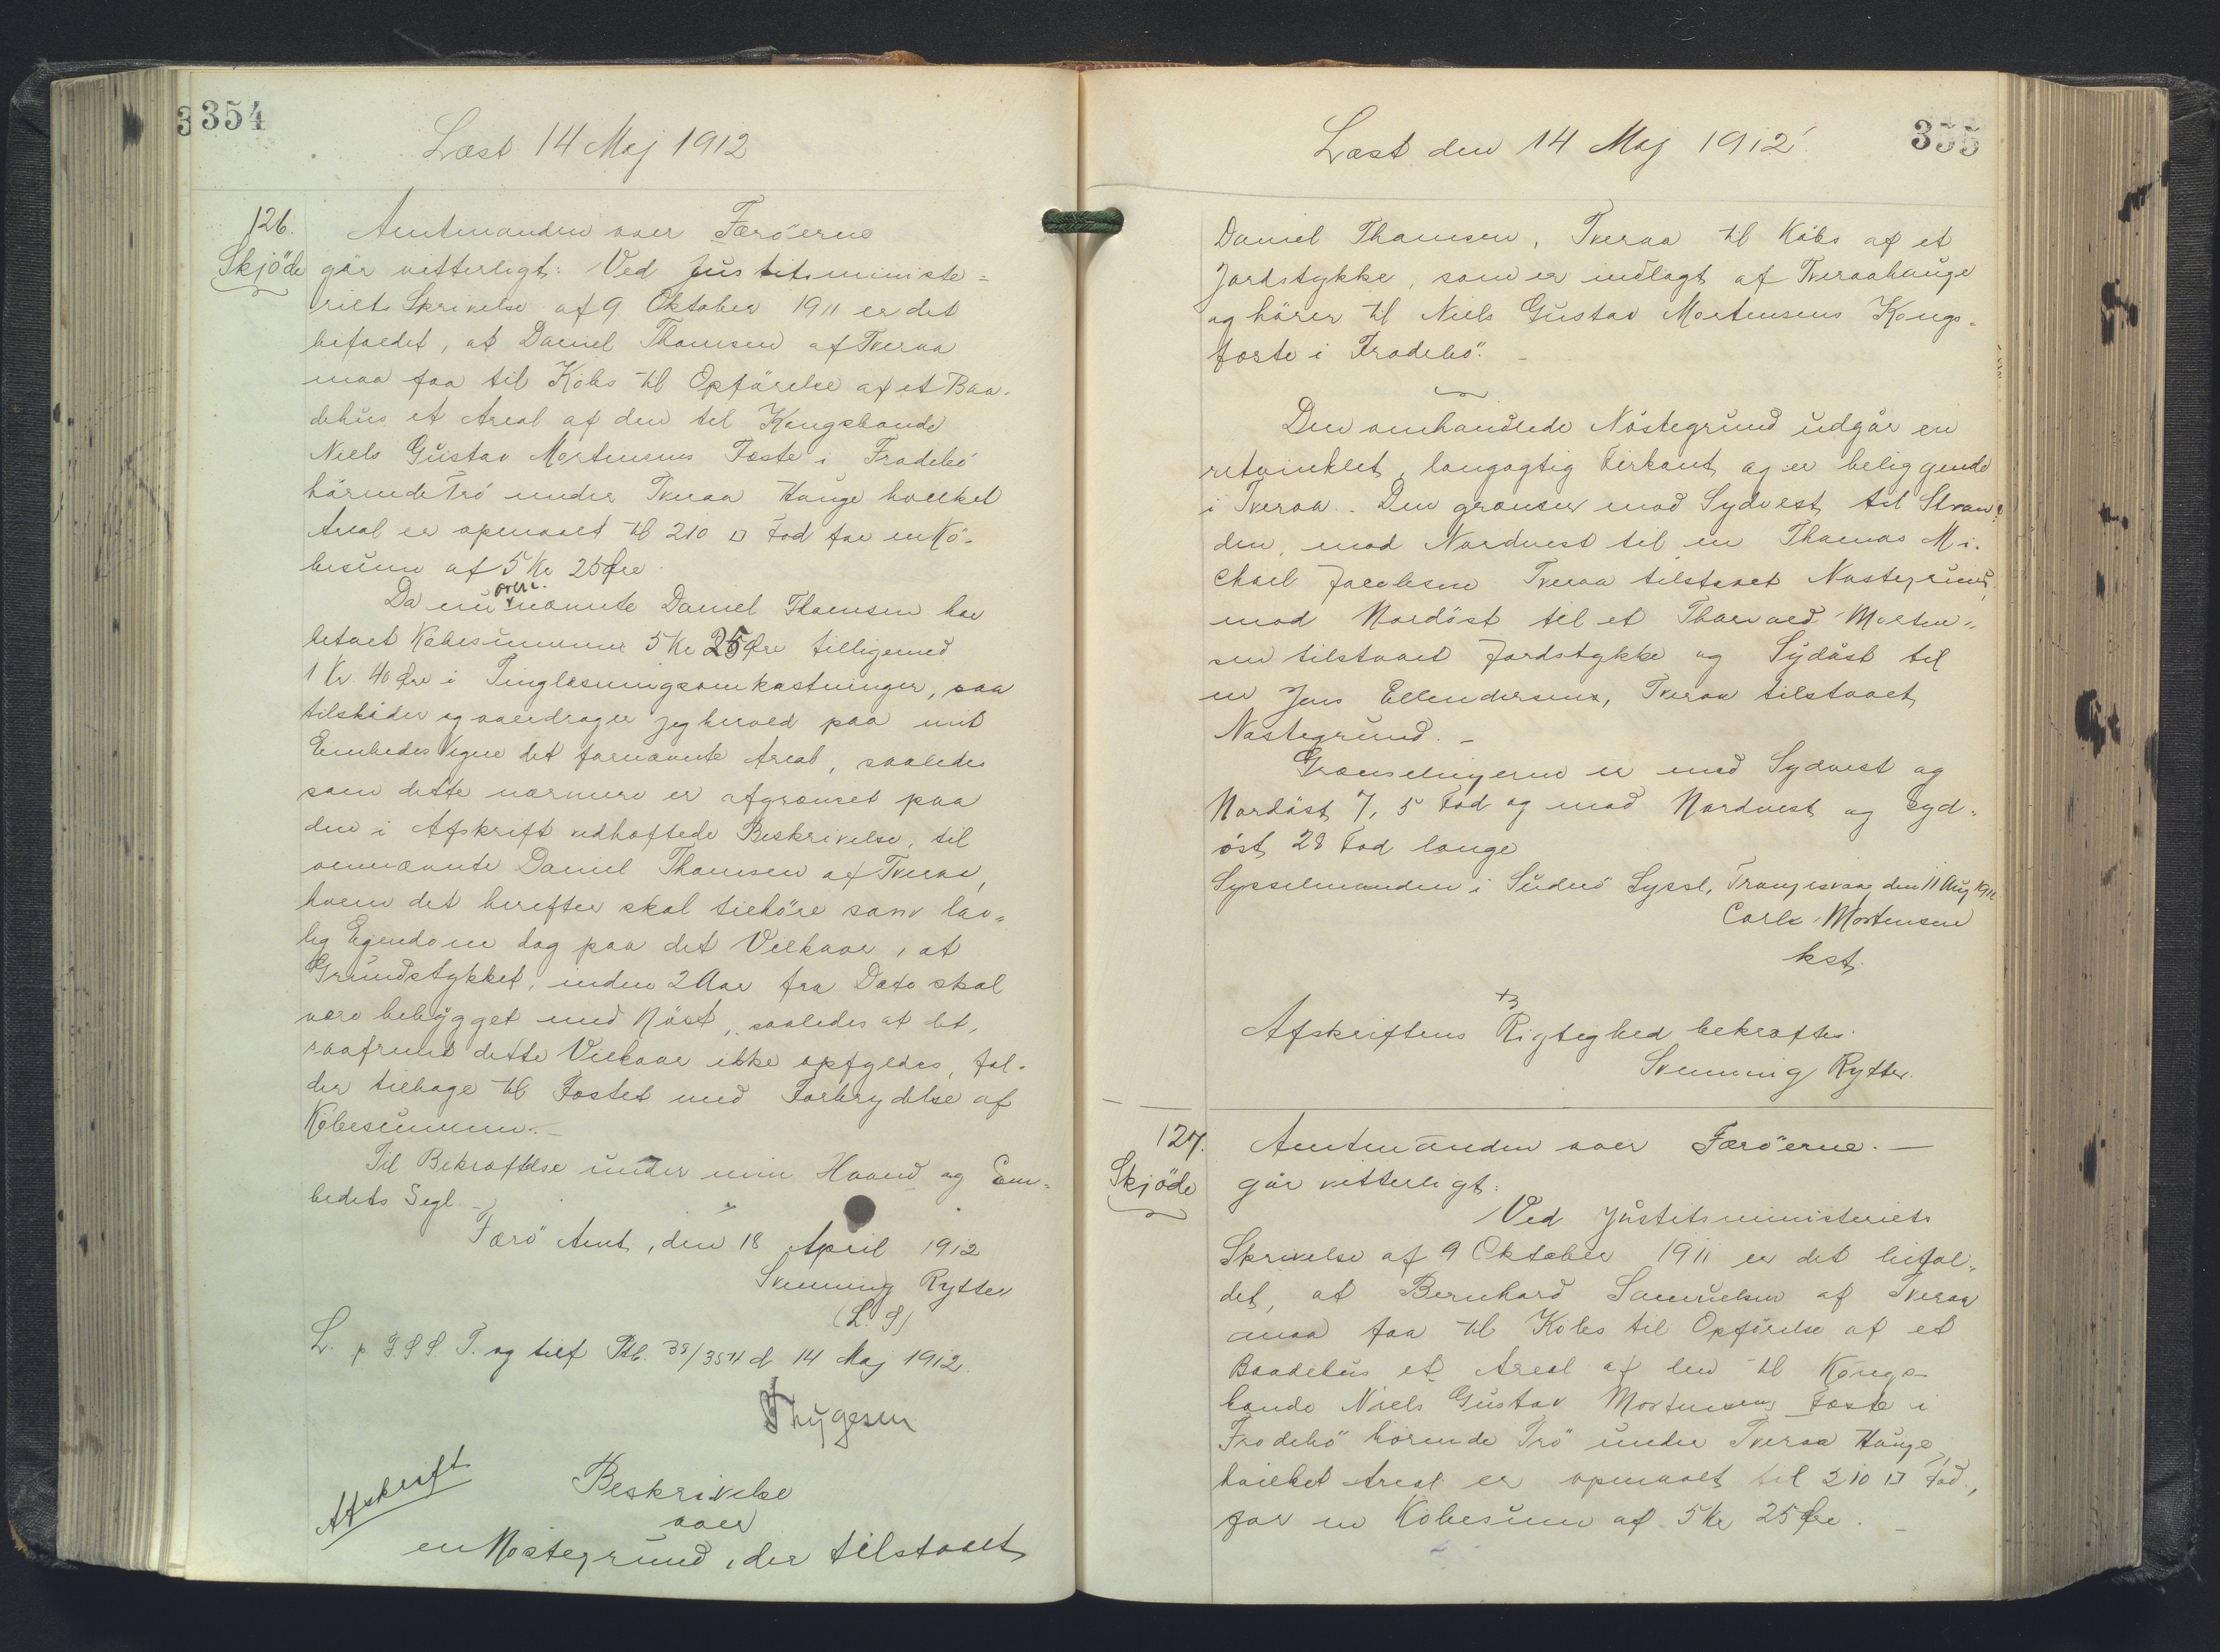 354
Læst 14 Maj 1912
126.
Skjöde
Amtmanden over Færöerne
gör vitterligt: Ved Justitsministe=
riets Skrivelse af 9 Oktober 1911 er det
bifaldet, at Daniel Thomsen af Tveraa
maa faa til Köbs til Opförelse af et Baa-
dehus et Areal af den til Kongsbonde
Niels Gustav Mortensens Fæste i Frodebö
hörende Trö under Tveraa Hauge hvilket
Areal er opmaalt til 210 □ Fod for en Kö-
besum af 5 Kr 25 Øre
Da nu oven-
nævnte Daniel Thomsen har
betalt Köbesummen 5 Kr 25 Øre tilligemed
1 Kr. 40 Øre i Tinglæsningsomkostninger, saa
tilskóder og overdrager jeg herved paa mit
Embedes Vegne det fornævnte Areal, saaledes
som dette nærmere er afgrænset paa
den i Afskrift vedhæftede Beskrivelse, til
nævnte Daniel Thomsen af Tveraa,
hvem det herefter skal tilhöre som lov=
lig Egendom dog paa det Vilkaar, at
Grundstykket, inden 2 Aar fra Dato skal
være bebygget med Nöst, saaledes at det,
saafremt dette Vilkaar ikke opfyldes, fal-
der tilbage til Fæstet med Forbrydelse af
Köbesummen.-
Til Bekræftelse under min Haand og Em=
bedets Segl.-
Færö Amt, den 18 April 1912
Svenning Rytter
(L. S)
L. p. F. S S T. og tilf Ptb. 38/354 d 14 Maj 1912.
Thygesen
Afskrift
Beskrivelse
over
en Nöstegrund, der tilstaaet
355
Læst den 14 Maj 1912
Daniel Thomsen, Tveraa til Köbs af et
Jordstykke, som er udlagt af Tveraahauge
og hörer til Niels Gustav Mortensens Kongs=
fæste i Frodebö. -
Den omhandlede Nöstegrund udgör en
retvinklet, langagtig Firkant og er beliggende
i Tveraa. Den grænser mod Sydvest til Stran=
den, mod Nordvest til en Thomas Mi.
chael Jacobsen Tveraa tilstaaet Nöstegrund,
mod Nordöst til et Thorvald Morten=
sen tilstaaet Jordstykke og Sydöst til
en Jens Ellendersens, Tveraa tilstaaet
Nöstegrund. -
Grænselinjerne er mod Sydvest og
Nordöst 7,5 Fod og mod Nordvest og Syd=
öst 28 Fod lange
Sysselmanden i Suderö Syssel, Trangisvaag, den 11 Aug 1911
Carl Mortensen
kst.
Afskriftens Rigtighed bekræftes
Svenning Rytter.
127.
Skjöde
Amtmanden over Færöerne. -
gör vitterligt:
Ved Justitsministeriets
Skrivelse af 9 Oktober 1911 er det bifal=
det, at Bernhard Samuelsen af Tveraa
maa faa til Köbs til Opförelse af et
Baadehus et Areal af den til Kongs-
bonde Niels Gustav Mortensens Fæste i
Frodebö hörende Trö under Tveraa Hauge,
hvilket Areal er opmaalt til 210 □ Fod.,
for en Köbesum af 5 Kr 25 Øre. -